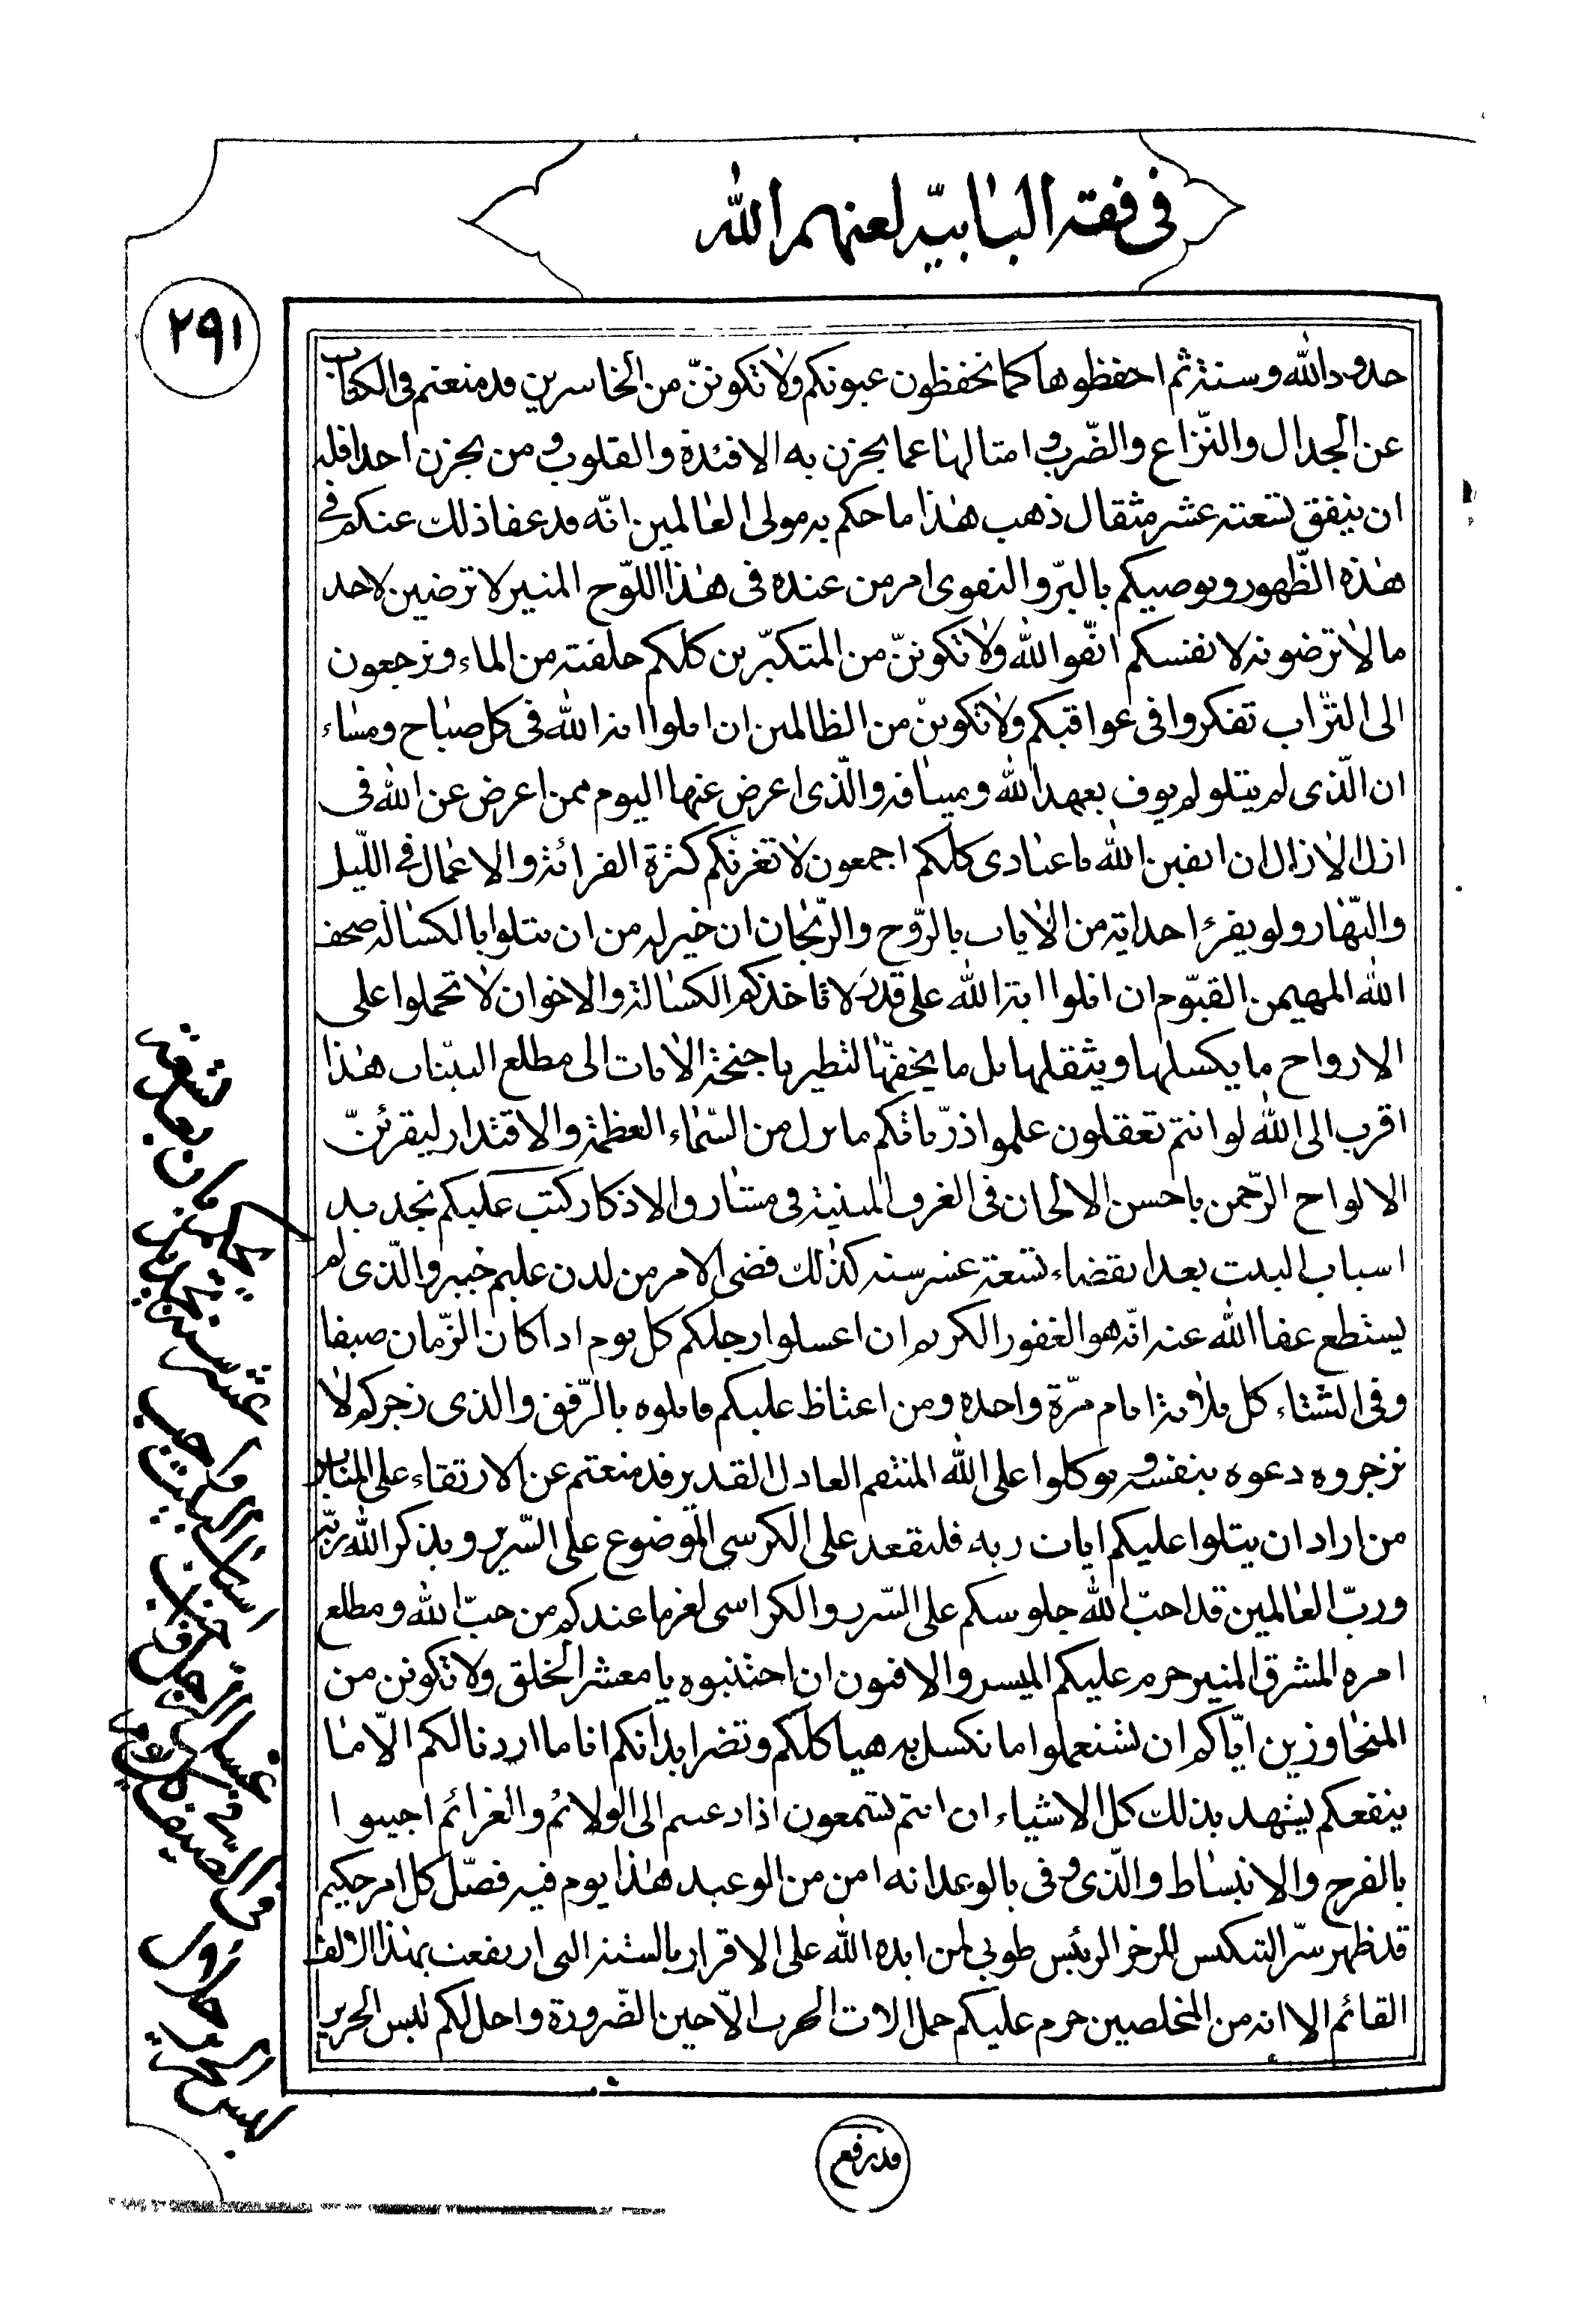 فى فقه البابيّه لعنهم الله
٢٩١
حدود الله وسنته ثم احفظوها كما تحفظون عيونكم ولا تكوننّ من الخاسرين قد منعتم فى الكتاب
عن الجدال والنّزاع والضّرب وامثالها عما يحزن به الافئدة والقلوب ومن يحزن احدا فله
ان ينفق تسعته عشر مثقال ذهب هذا ما حكم به مولى العالمين انّه قد عفا ذلك عنكم فى
هذه الظّهور ويوصيكم بالبرّ والتقوى امر من عنده فى هذا اللّوح المنير لا ترضين لاحد
ما لا ترضونه لانفسكم اتّقوا الله ولا تكوننّ من المتكبّرين كلكم خلقته من الماء وترجعون
الى التّراب تفكروا فى عواقبكم ولا تكوننّ من الظالمين ان اتلوا ايه الله فى كل صباح ومساء
ان الّذى لم يتلو لم يوف بعهد الله وميثاقه والّذى اعرض عنها اليوم ممن اعرض عن الله فى
ازل الازال ان اتقين الله يا عبادى كلكم اجمعون لا تغرنّكم كثرة القرائة والاعمال فى اللّيل
والنّهار ولو يقرء احد اية من الايات بالرّوح والرّيحان ان خير له من ان يتلوا بالكسالة صحف
الله المهيمن القيّوم ان اتلوا اية الله على قدر لا تاخذكم الكسالة والاخوان لا تحملوا على
الارواح ما يكسلها ويثقلها بل ما يخفّها لتطير باجنحة الايات الى مطلع البيّنات هذا
اقرب الى الله لو انتم تعقلون علموا ذرّياتكم ما نزل من السّماء العظمة والاقتدار ليقرئنّ
الالواح الرّحمن باحسن الالحان فى الغرف المبنية فى مشارق الاذكار كتب عليكم تجديد
اسباب البيت بعد انقضاء تسعة عشر سنه كذلك قضى الامر من لدن عليم خبير والّذى لم
يستطع عفا الله عنه انّه هو الغفور الكريم ان اغسلوا ارجلكم كل يوم اذا كان الزّمان صيفا
وفى الشّتاء كل ثلاثة ايام مرّة واحده ومن اغتاظ عليكم قابلوه بالرّفق والذى زجركم لا
تزجروه دعوه بنفسه وتوكلوا على الله المنتقم العادل القدير قد منعتم عن الارتقاء على المنابر
من اراد ان يتلوا عليكم ايات ربه فليقعد على الكرسى الموضوع على السّرير ويذكر الله ربّه
وربّ العالمين قد احبّ الله جلوسكم على السّرر والكراسى لعز ما عندكم من حبّ الله ومطلع
امره المشرق المنير حرم عليكم الميسر والافيون ان اجتنبوه يا معشر الخلق ولا تكونن من
المتجاوزين ايّاكم ان تستعملوا ما تكسل به هياكلكم وتضر ابدانكم انا ما اردنا لكم الّا ما
ينفعكم يشهد بذلك كل الاشياء ان انتم تسمعون اذا دعيتم الى الولائم والغزائم اجيبوا
بالفرح والانبساط والّذى وفى بالوعد انه امن من الوعيد هذا يوم فيه فصّل كل امر حكيم
قد ظهر سرّ التنكيس لرمز الرئيس طوبى لمن ايده الله على الاقرار بالستة التى ارتفعت بهذا الالف
القائم الا انه من المخلصين حرم عليكم حمل الات الحرب الّا حين الضّرورة واحل لكم لبس الحرير
قد رفع